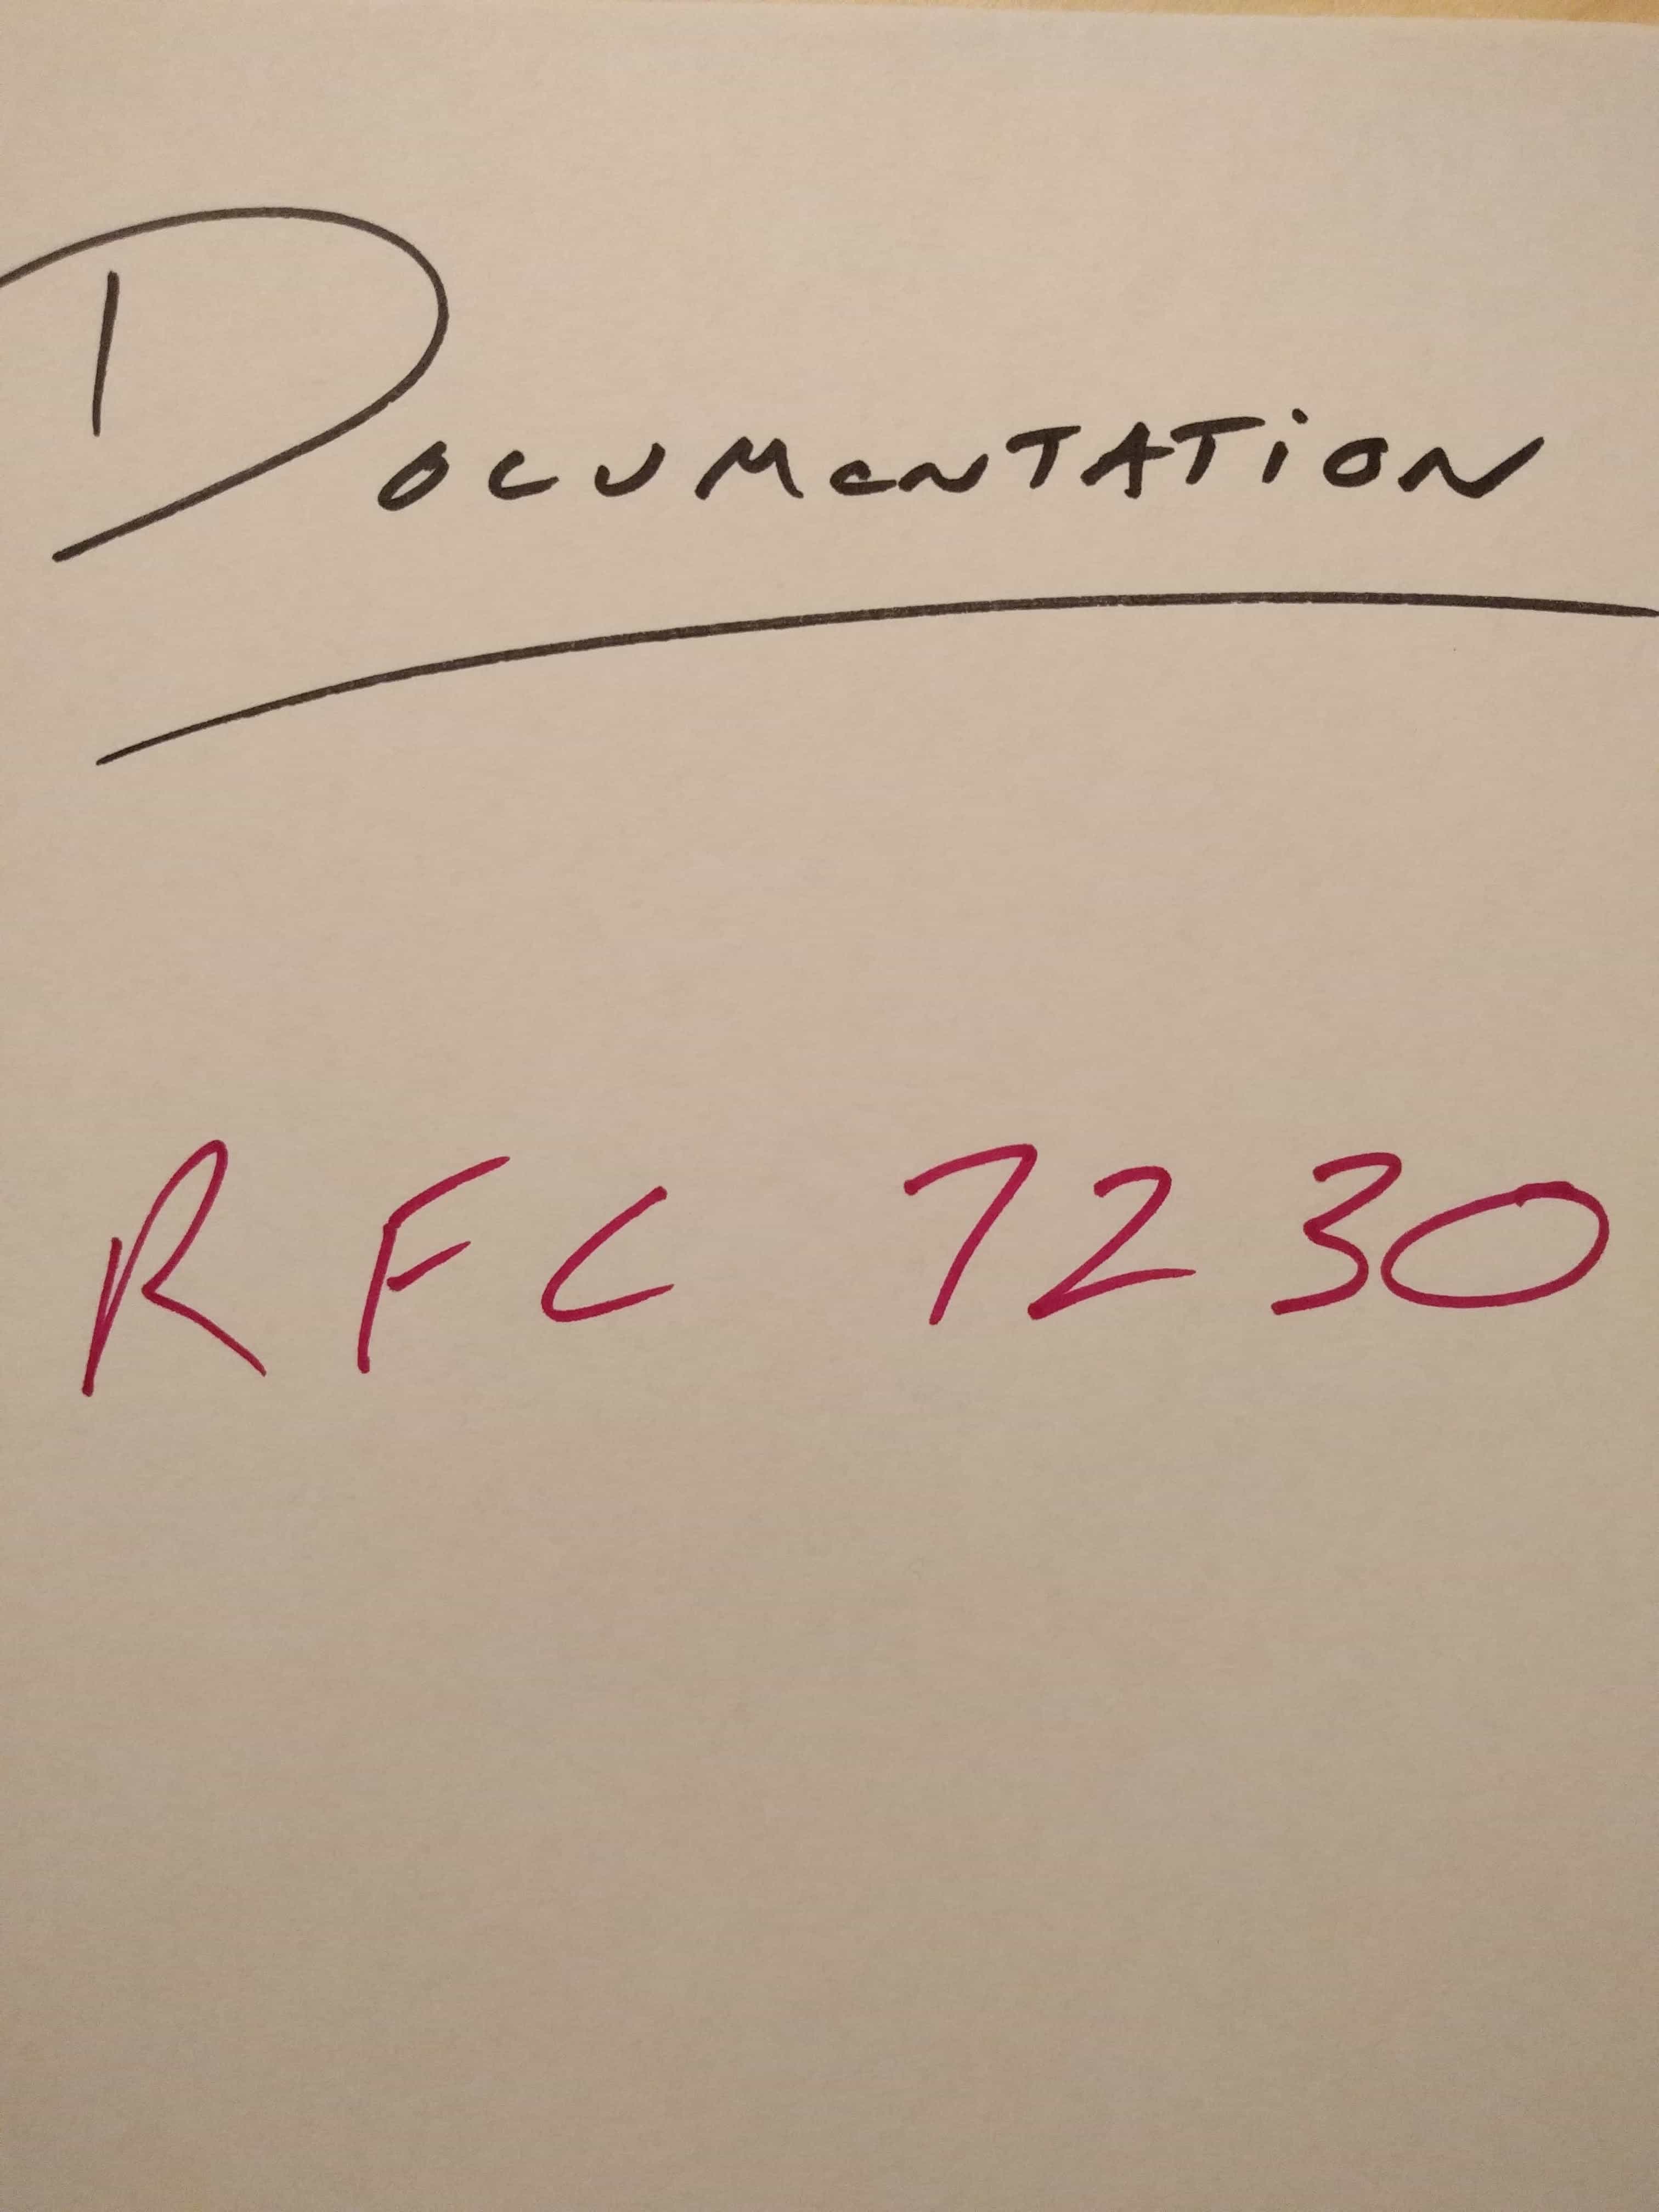 DOCUMeNTATiON
RFC 7230